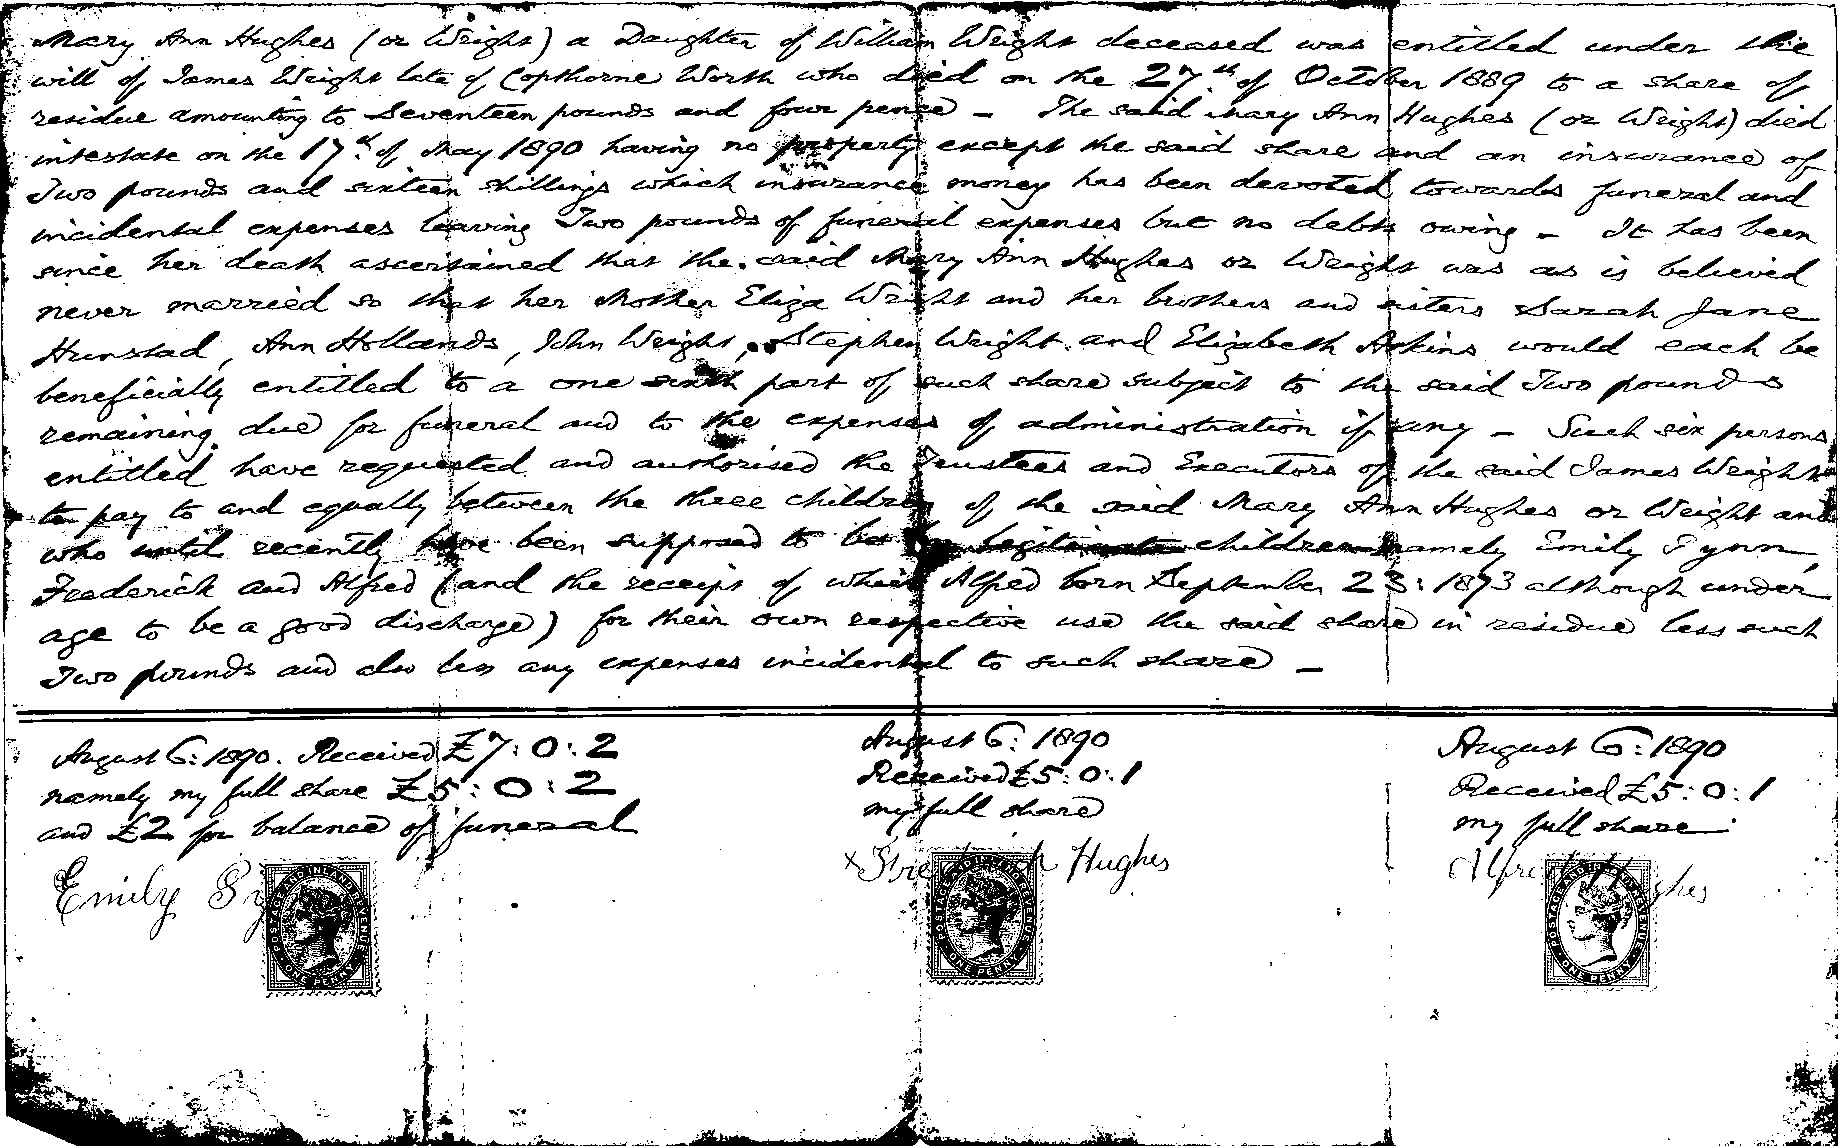 Mary Ann Hughes (or Wright) a Daughter of William Wright deceased was entitled under the
will of James Wright late of Copthorne Worth who died on the 27th of October 1889 to a share of
residue amounting to Seventeen pounds and four pence – The said Mary Ann Hughes (or Wright) died
intestate on the 17th of May 1890 having no property except the said share and an insurance of
Two pounds and sixteen shillings which insurance money has been devoted towards funeral and
incidental expenses leaving Two pounds of funeral expenses but no debts owing – It has been
since her death ascertained that the said Mary Ann Hughes or Wright was as is believed
never married so that her Mother Eliza Wright and her brothers and sisters Sarah Jane
Hunstad, Ann Hollands, John Wright, Stephen Wright and Elizabeth Askins would each be
beneficially entitled to a one sixth part of such share subject to the said Two pounds
remaining due for funeral and to the expenses of administration if any – Such six persons
entitled have requested and authorised the Trustees and Executors of the said James Wright
to pay to and equally between the three children of the said Mary Ann Hughes or Wright and
who until recently have been supposed to be legitimate children namely Emily Pynn,
Frederick and Alfred (and the receipt of which Alfred born September 23: 1873 although under
age to be a good discharge) for their own respective use the said share in residue less such
Two pounds and also less any expenses incidental to such share –
August 6: 1890. Received £7:0:2
namely my full share £5:0:2
and £2 for balance of funeral
Emily
POSTAGE AND INLAND REVENUE
ONE PENNY
August 6: 1890
Received £5:0:1
my full share
x Hughes
POSTAGE AND INLAND REVENUE
ONE PENNY
August 6: 1890
Received £5:0:1
my full share
Alfred Hughes
POSTAGE AND INLAND REVENUE
ONE PENNY